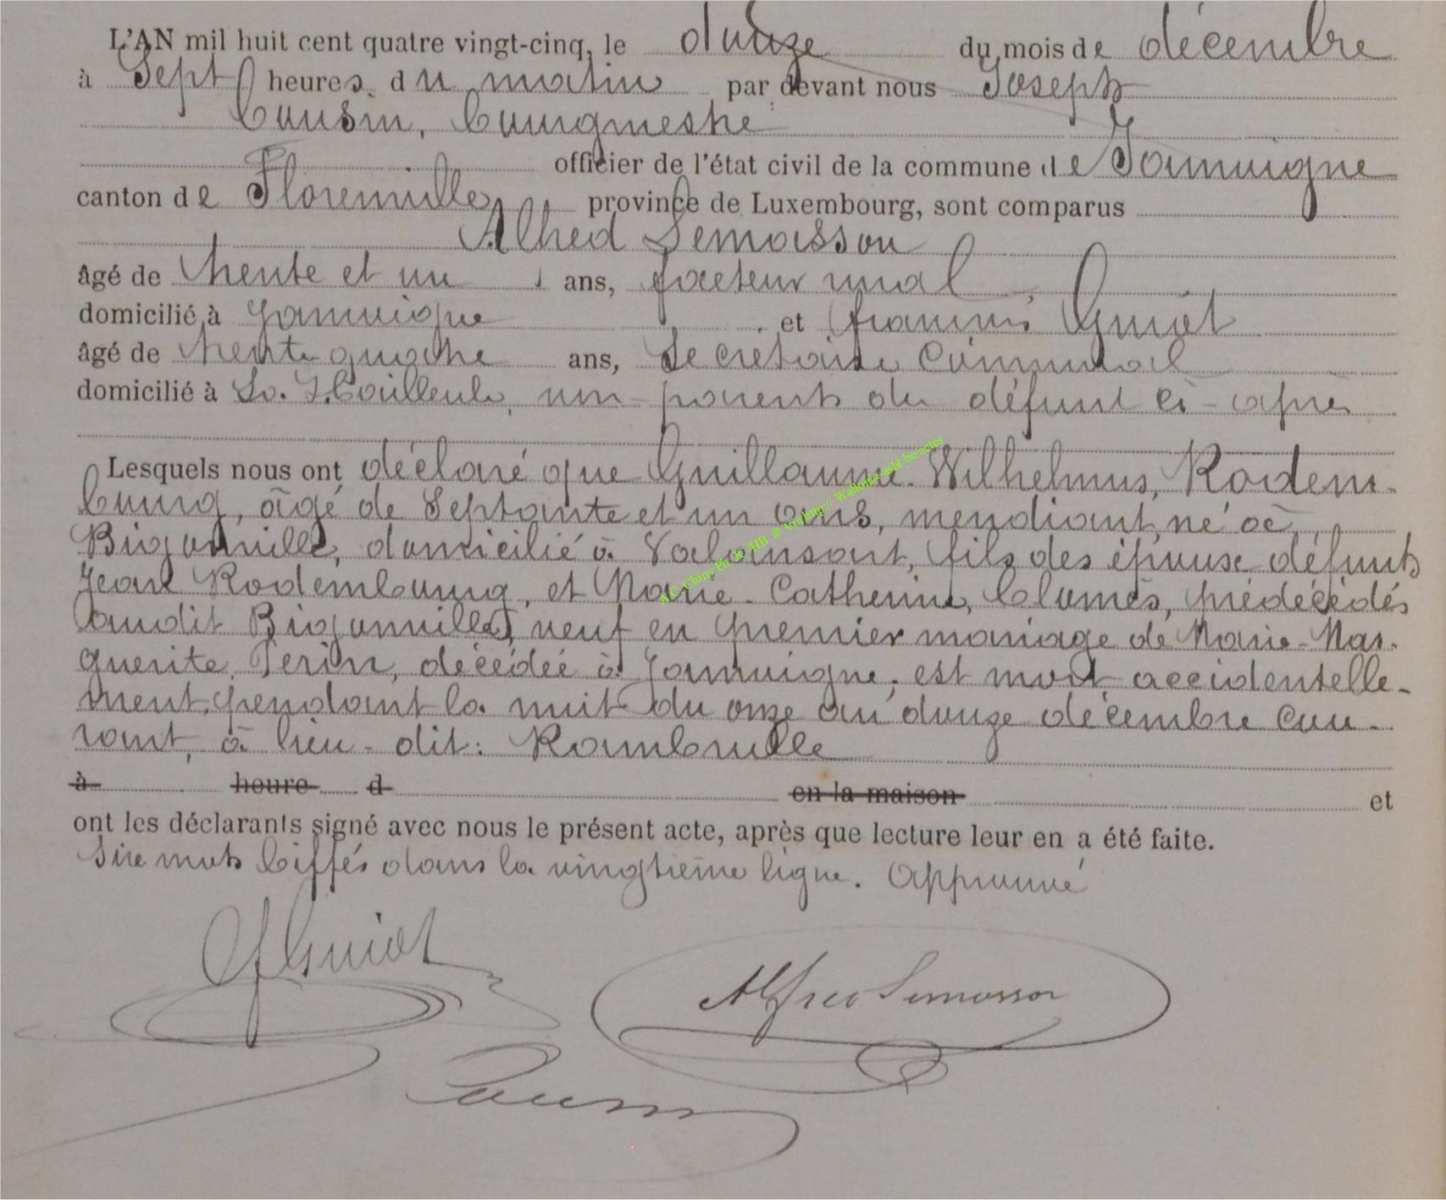 L'AN mil huit cent quatre vingt-cinq, le douze du mois de décembre
à Sept heures du matin par devant nous Joseph
Cousin, bourgmestre
officier de l'état civil de la commune de Jamoigne
canton de Florenville province de Luxembourg, sont comparus
Alfred Lemasson
âgé de trente et un ans, facteur rural,
domicilié à Jamoigne et François Guiot
âgé de trente quatre ans, Secrétaire Communal
domicilié à La Hailleule, non-parents du défunt ci-après
Lesquels nous ont déclaré que Guillaume-Wilhelmus, Rodem-
bourg, âgé de Septante et un ans, mendiant, né à
Bigonville, domicilié à Valansart, fils des époux défunts
Jean Rodembourg, et Marie-Catherine, Clomes, prédécédés
audit Bigonville, veuf en premier mariage de Marie-Mar-
guerite, Perin, décédée à Jamoigne, est mort accidentelle-
ment, pendant la nuit du onze au douze décembre cou-
rant, à lieu-dit: Rambrulle
à heure d en la maison et
ont les déclarants signé avec nous le présent acte, après que lecture leur en a été faite.
Six mots biffés dans la vingtième ligne. Approuvé
f Guiot
Alfred Lemasson
Cousin